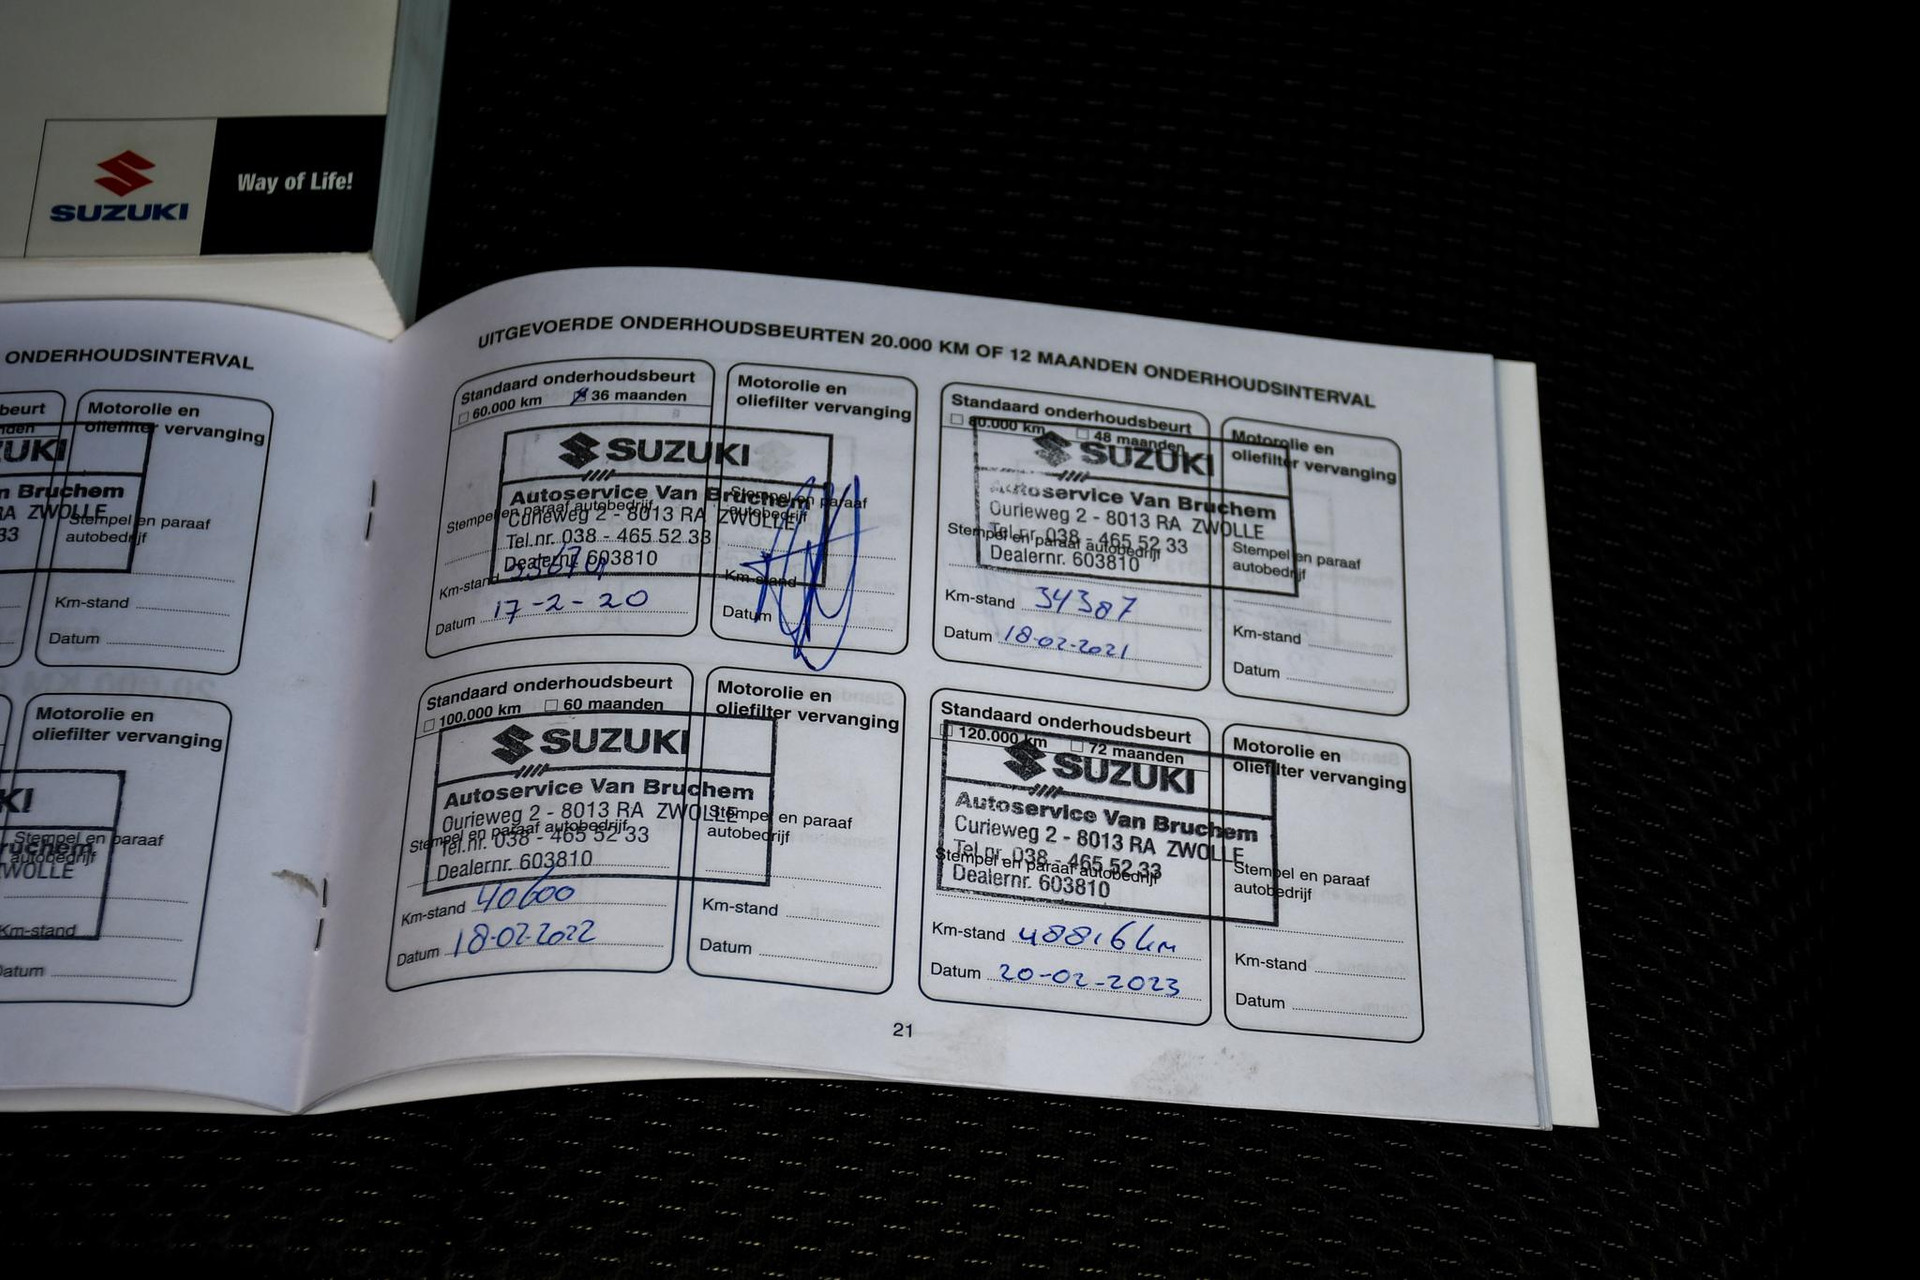 SUZUKI
Way of Life!
ONDERHOUDSINTERVAL
beurt
Motorolie en
oliefilter vervanging
Bruchem
ZWOLLE
33
Stempel en paraaf
autobedrijf
Km-stand
Datum
Motorolie en
oliefilter vervanging
Stempel en paraaf
autobedrijf
Km-stand
Datum
UITGEVOERDE ONDERHOUDSBEURTEN 20.000 KM OF 12 MAANDEN ONDERHOUDSINTERVAL
Standaard onderhoudsbeurt
60.000 km 36 maanden
SUZUKI
Autoservice Van Bruchem
Curieweg 2 - 8013 RA ZWOLLE
Stempel en paraaf autobedrijf
Tel.nr. 038 - 465 52 33
Dealernr. 603810
Km-stand
Datum 17-2-20
Motorolie en
oliefilter vervanging
Stempel en paraaf
autobedrijf
Km-stand
Datum
Standaard onderhoudsbeurt
80.000 km 48 maanden
SUZUKI
Autoservice Van Bruchem
Curieweg 2 - 8013 RA ZWOLLE
Tel.nr. 038 - 465 52 33
Stempel en paraaf autobedrijf
Dealernr. 603810
Km-stand 34387
Datum 18-02-2021
Motorolie en
oliefilter vervanging
Stempel en paraaf
autobedrijf
Km-stand
Datum
Standaard onderhoudsbeurt
100.000 km 60 maanden
SUZUKI
Autoservice Van Bruchem
Curieweg 2 - 8013 RA ZWOLLE
Stempel en paraaf autobedrijf
Tel.nr. 038 - 465 52 33
Dealernr. 603810
Km-stand 40600
Datum 18-02-2022
Motorolie en
oliefilter vervanging
Stempel en paraaf
autobedrijf
Km-stand
Datum
Standaard onderhoudsbeurt
120.000 km 72 maanden
SUZUKI
Autoservice Van Bruchem
Curieweg 2 - 8013 RA ZWOLLE
Tel.nr. 038 - 465 52 33
Stempel en paraaf autobedrijf
Dealernr. 603810
Km-stand 48816 km
Datum 20-02-2023
Motorolie en
oliefilter vervanging
Stempel en paraaf
autobedrijf
Km-stand
Datum
21